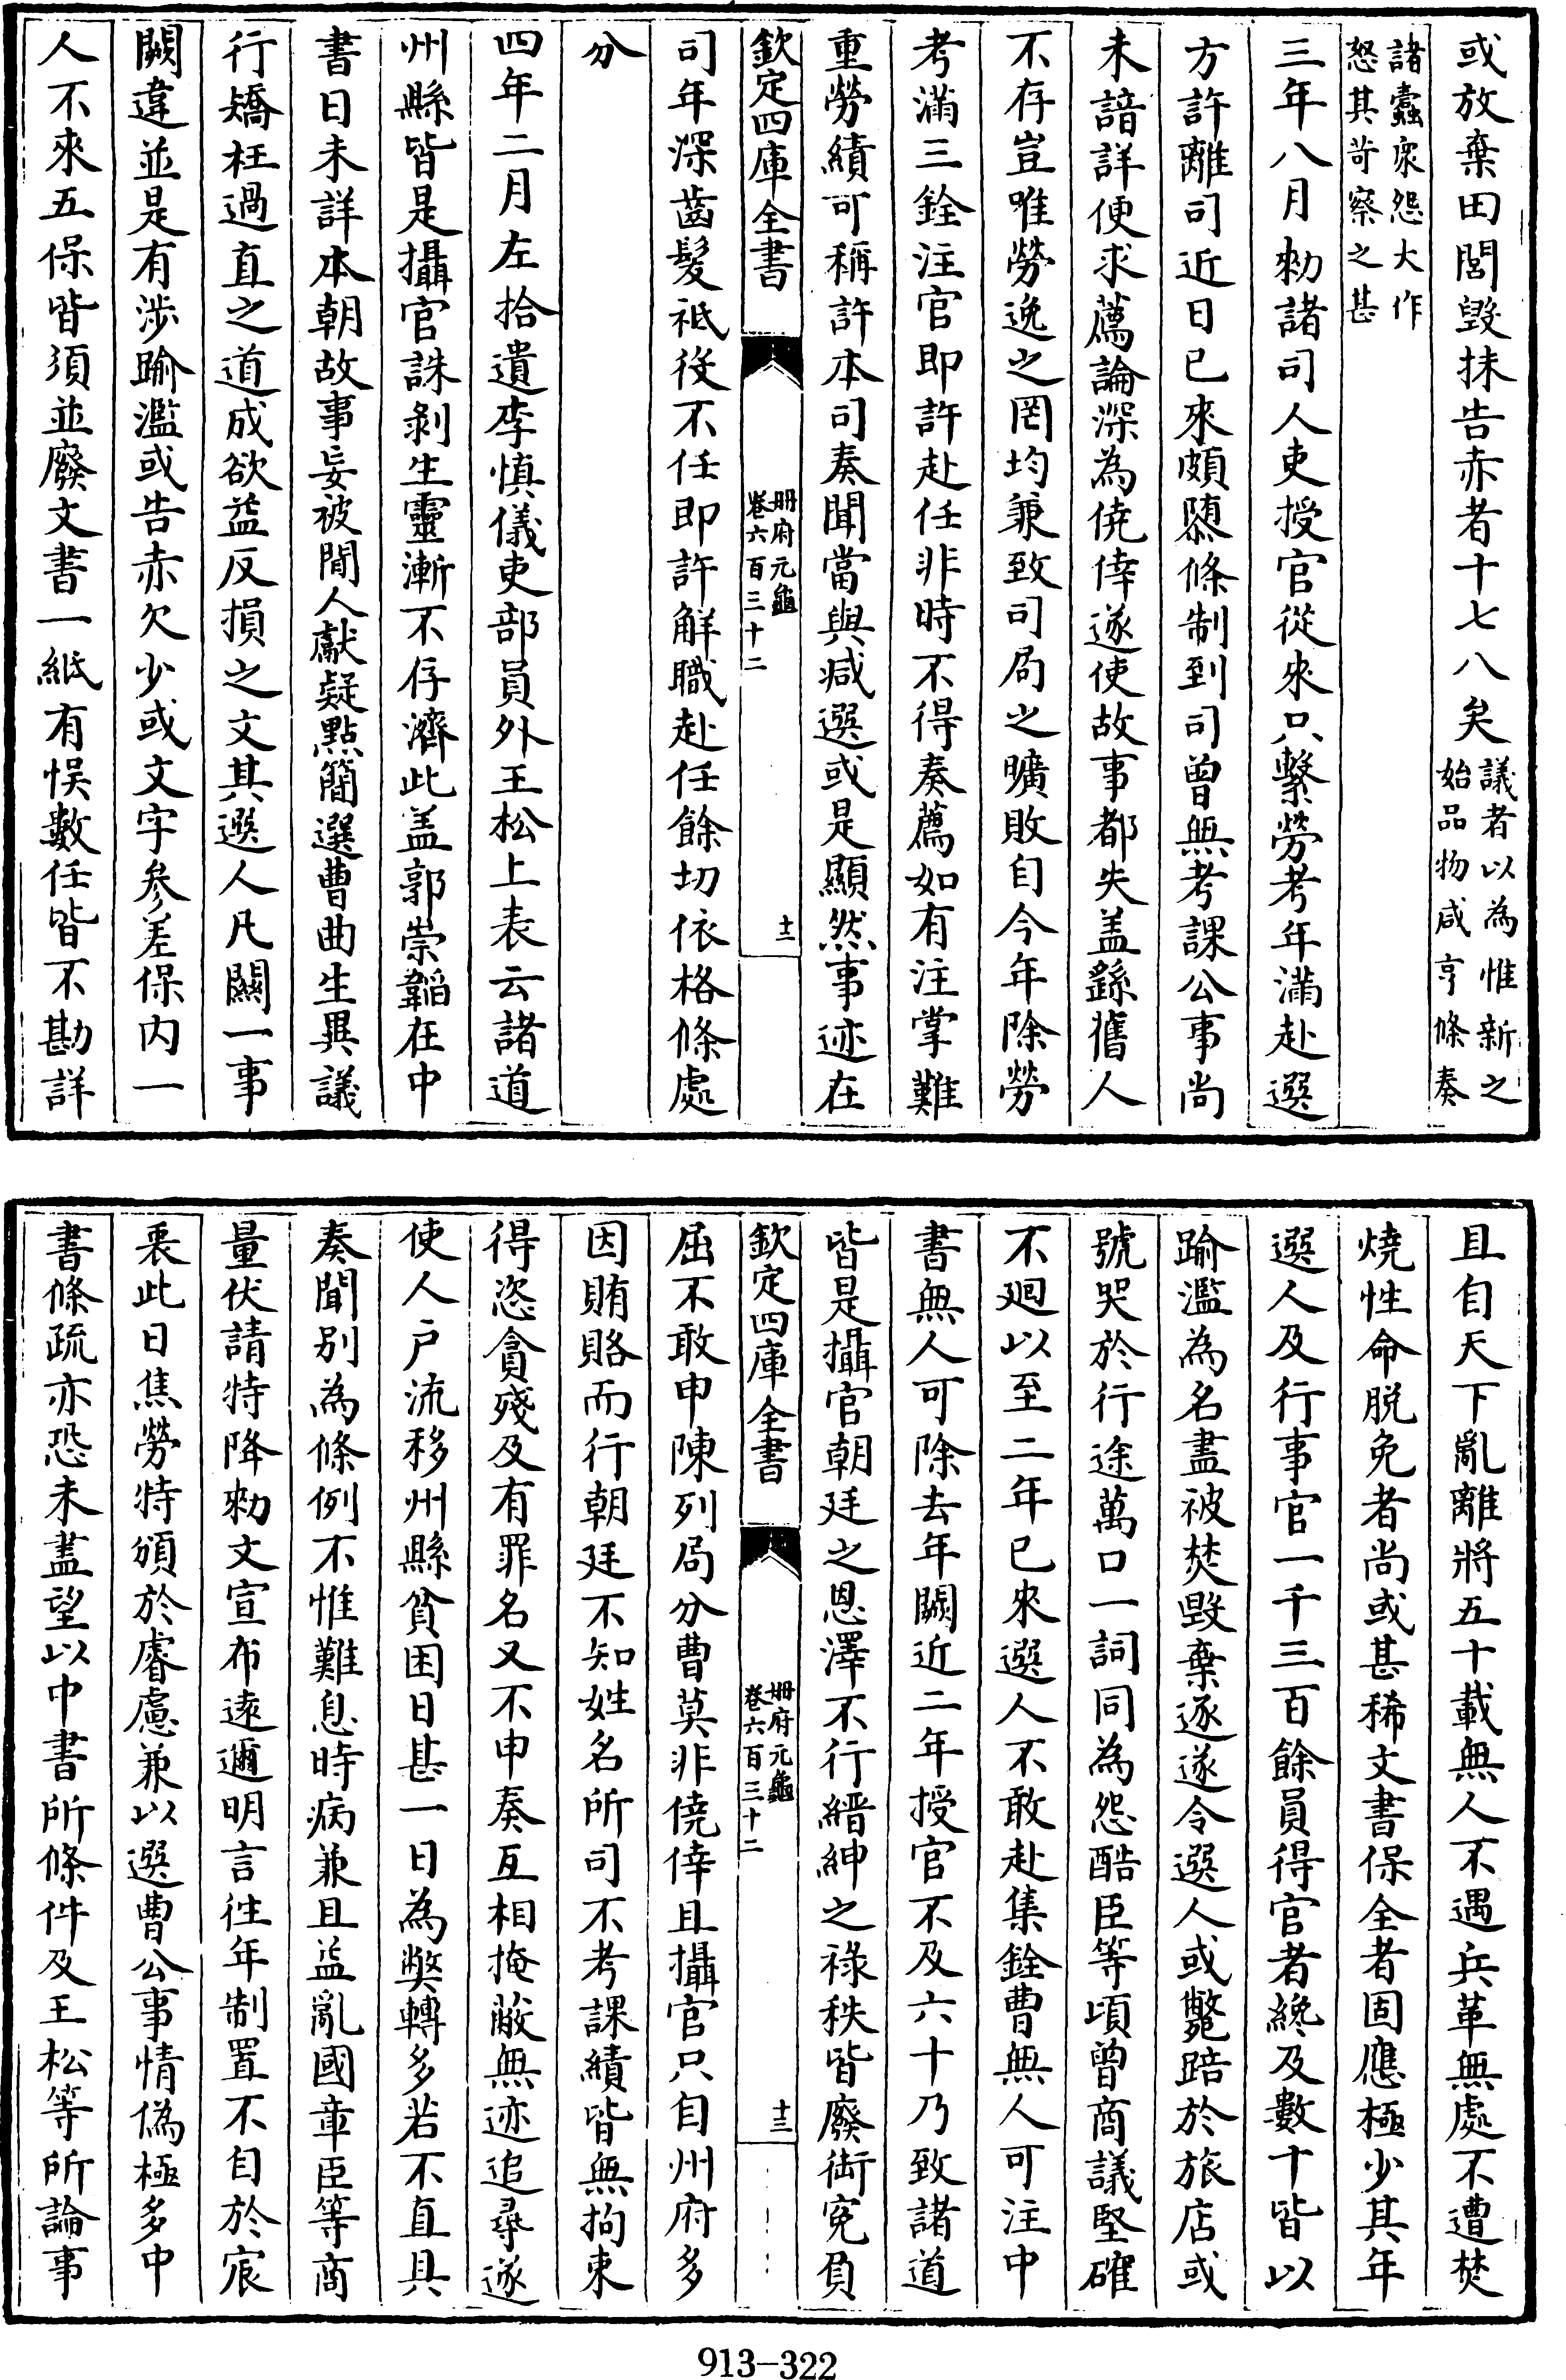 或放棄田閭毀抹告赤者十七八矣議者以為惟新之始品物咸亨條奏
諸蠹衆怨大作怒其苛察之甚
三年八月勑諸司人吏授官從來只繫勞考年滿赴選
方許離司近日已來頗隳條制到司曾無考課公事尚
未諳詳便求薦論深為僥倖遂使故事都失蓋繇舊人
不存豈唯勞逸之罔均兼致司局之曠敗自今年除勞
考滿三銓注官即許赴任非時不得奏薦如有注掌難
重勞績可稱許本司奏聞當與減選或是顯然事迹在
欽定四庫全書
冊府元龜
卷六百三十二
十二
司年深齒髮祗役不任即許解職赴任餘切依格條處
分
四年二月左拾遺李慎儀吏部員外王松上表云諸道
州縣皆是攝官誅剝生靈漸不存濟此蓋郭崇韜在中
書日未詳本朝故事妄被閒人獻疑點簡選曹曲生異議
行矯枉過直之道成欲益反損之文其選人凡關一事
闕違並是有涉踰濫或告赤欠少或文字參差保内一
人不來五保皆須並廢文書一紙有悞數任皆不勘詳
且自天下亂離將五十載無人不遇兵革無處不遭焚
燒性命脫免者尚或甚稀文書保全者固應極少其年
選人及行事官一千三百餘員得官者纔及數十皆以
踰濫為名盡被焚毀棄逐遂令選人或斃踣於旅店或
號哭於行途萬口一詞同為怨酷臣等頃曾商議堅確
不廻以至二年已來選人不敢赴集銓曹無人可注中
書無人可除去年闕近二年授官不及六十乃致諸道
皆是攝官朝廷之恩澤不行縉紳之祿秩皆廢銜寃負
欽定四庫全書
冊府元龜
卷六百三十二
十三
屈不敢申陳列局分曹莫非僥倖且攝官只自州府多
因賄賂而行朝廷不知姓名所司不考課績皆無拘束
得恣貪殘及有罪名又不申奏互相掩蔽無迹追尋遂
使人戶流移州縣貧困日甚一日為弊轉多若不直具
奏聞別為條例不惟難息時病兼且益亂國章臣等商
量伏請特降勑文宣布遠邇明言往年制置不自於宸
衷此日焦勞特頒於睿慮兼以選曹公事情偽極多中
書條疏亦恐未盡望以中書所條件及王松等所論事
913-322